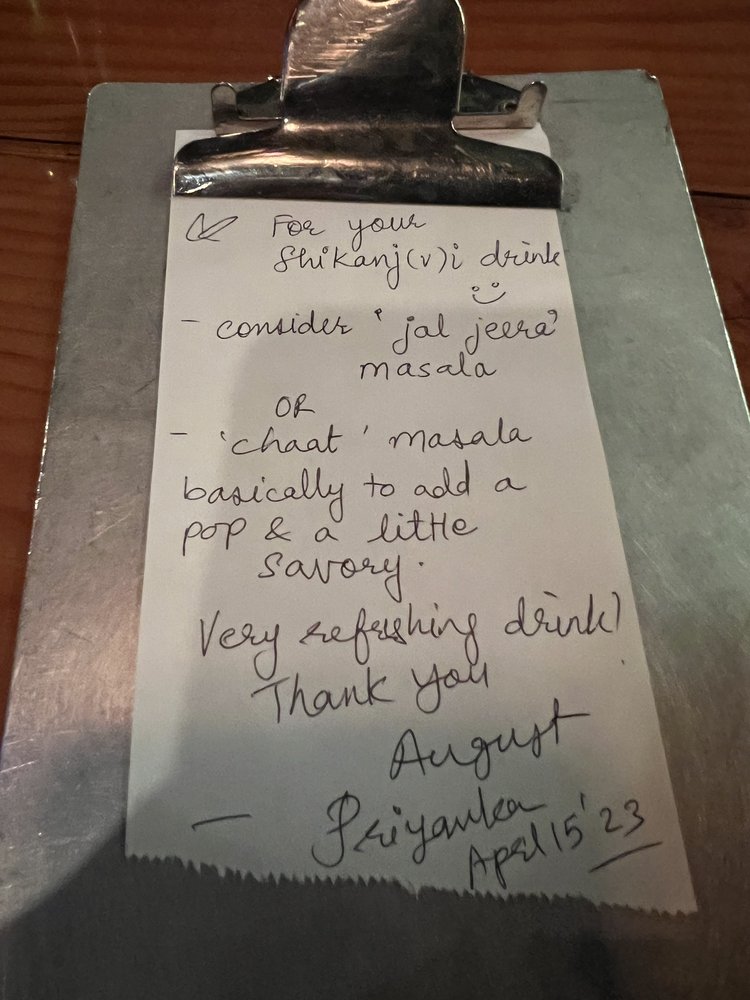 For your
Shikanj(v)i drink
- consider 'jal jeera'
masala
OR
- 'chaat' masala
basically to add a
pop & a little
savory.
Very refreshing drink!
Thank you
August
- Priyanka
April 15 '23